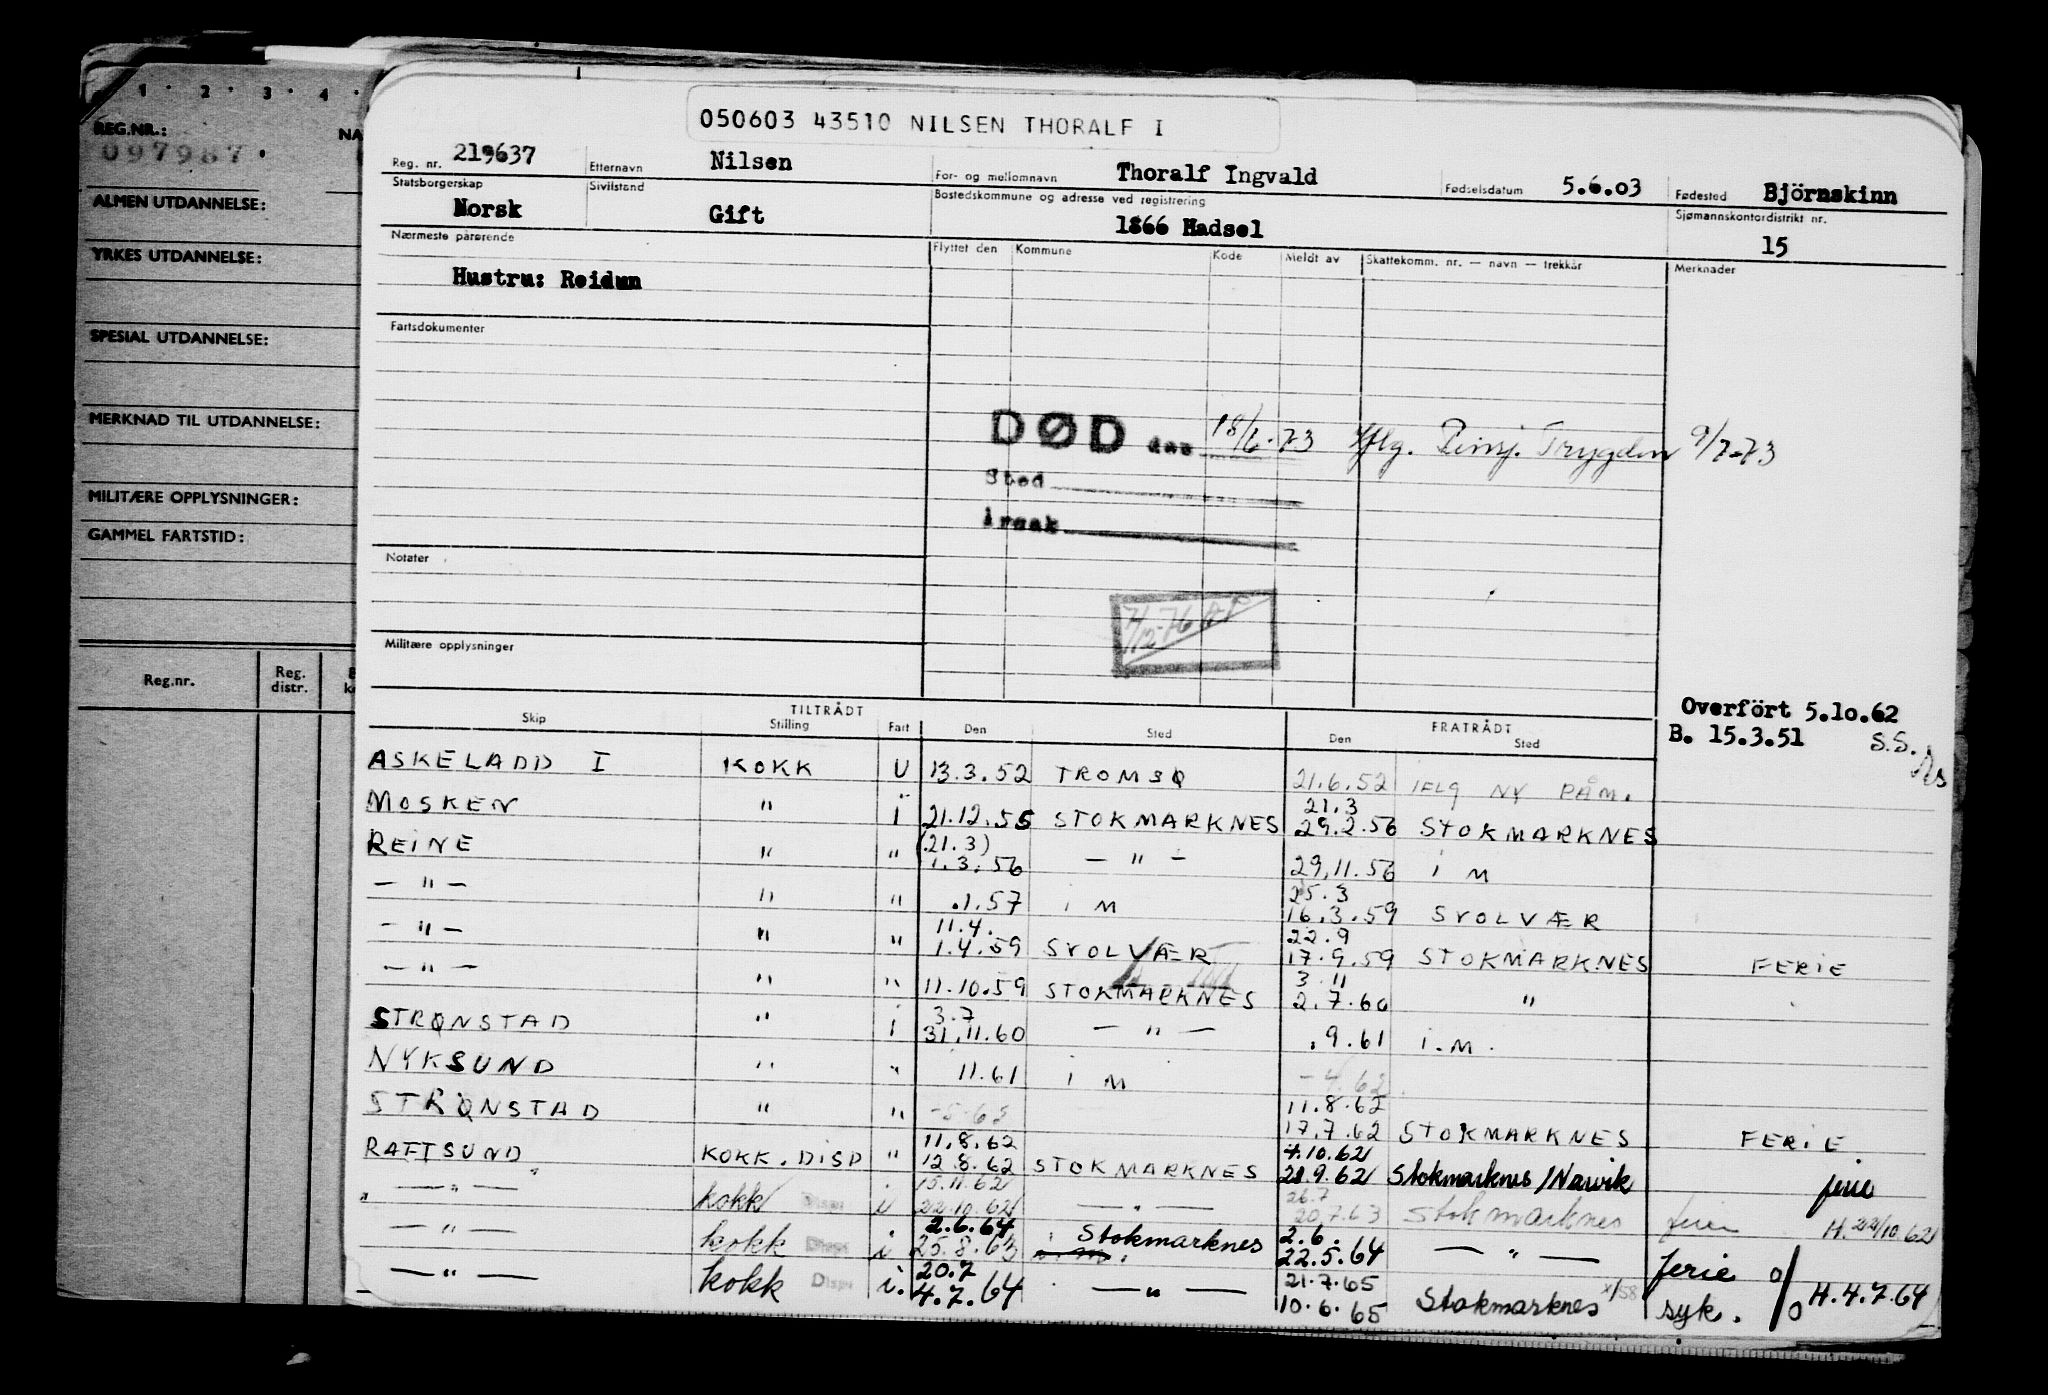 1 · 2 · 3 · 4 ·
REG.NR.: NA
097987 ·
ALMEN UTDANNELSE:
YRKES UTDANNELSE:
SPESIAL UTDANNELSE:
MERKNAD TIL UTDANNELSE:
MILITÆRE OPPLYSNINGER:
GAMMEL FARTSTID:
Reg.nr. Reg. distr.
050603 43510 NILSEN THORALF I
Reg. nr. 219637 Etternavn Nilsen For- og mellomnavn Thoralf Ingvald Fødselsdatum 5.6.03 Fødested Björnskinn
Statsborgerskap Norsk Sivilstand Gift Bostedskommune og adresse ved registrering 1866 Hadsel Sjømannskontordistrikt nr. 15
Nærmeste pårørende Flyttet den Kommune Kode Meldt av Skattekomm. nr. — navn — trekkår Merknader
Hustru: Reidun
Fartsdokumenter
DØD den 18/6-73 Iflg. Pensj. Trygden 9/7-73
Sted
Årsak
Notater
7/12-76
Militære opplysninger
Overfört 5.10.62
B. 15.3.51 S.S.
TILTRÅDT FRATRÅDT
Skip Stilling Fart Den Sted Den Sted
ASKELADD I KOKK U 13.3.52 TROMSØ 21.6.52 IFLG NY PÅM.
MOSKEN " i 21.12.55 STOKMARKNES 21.3 29.2.56 STOKMARKNES
REINE " " (21.3) 1.3.56 — " — 29.11.56 i M
— " — " " .1.57 i M 25.3 16.3.59 SVOLVÆR
— " — " " 11.4. 1.4.59 SVOLVÆR 22.9 17.9.59 STOKMARKNES FERIE
— " — " " 11.10.59 STOKMARKNES 3.11 2.7.60 "
STRØNSTAD " i 3.7 31.11.60 — " — .9.61 i.M.
NYKSUND " " 11.61 i M -4.62
STRØNSTAD " " 11.8.62 17.7.62 STOKMARKNES FERIE
RAFTSUND KOKK.DISP " 11.8.62 12.8.62 STOKMARKNES 4.10.62 28.9.62 Stokmarknes/Narvik ferie
— " — kokk Disp i 15.11.62 22.10.62 — " — 26.7 20.7.63 Stokmarknes ferie H.22/10.62
— " — kokk i 2.6.64 25.8.63 Stokmarknes 2.6. 22.5.64 — " — ferie
— " — kokk Disp i. 20.7 4.7.64 — " — 21.7.65 10.6.65 Stokmarknes syk. H.4.7.64